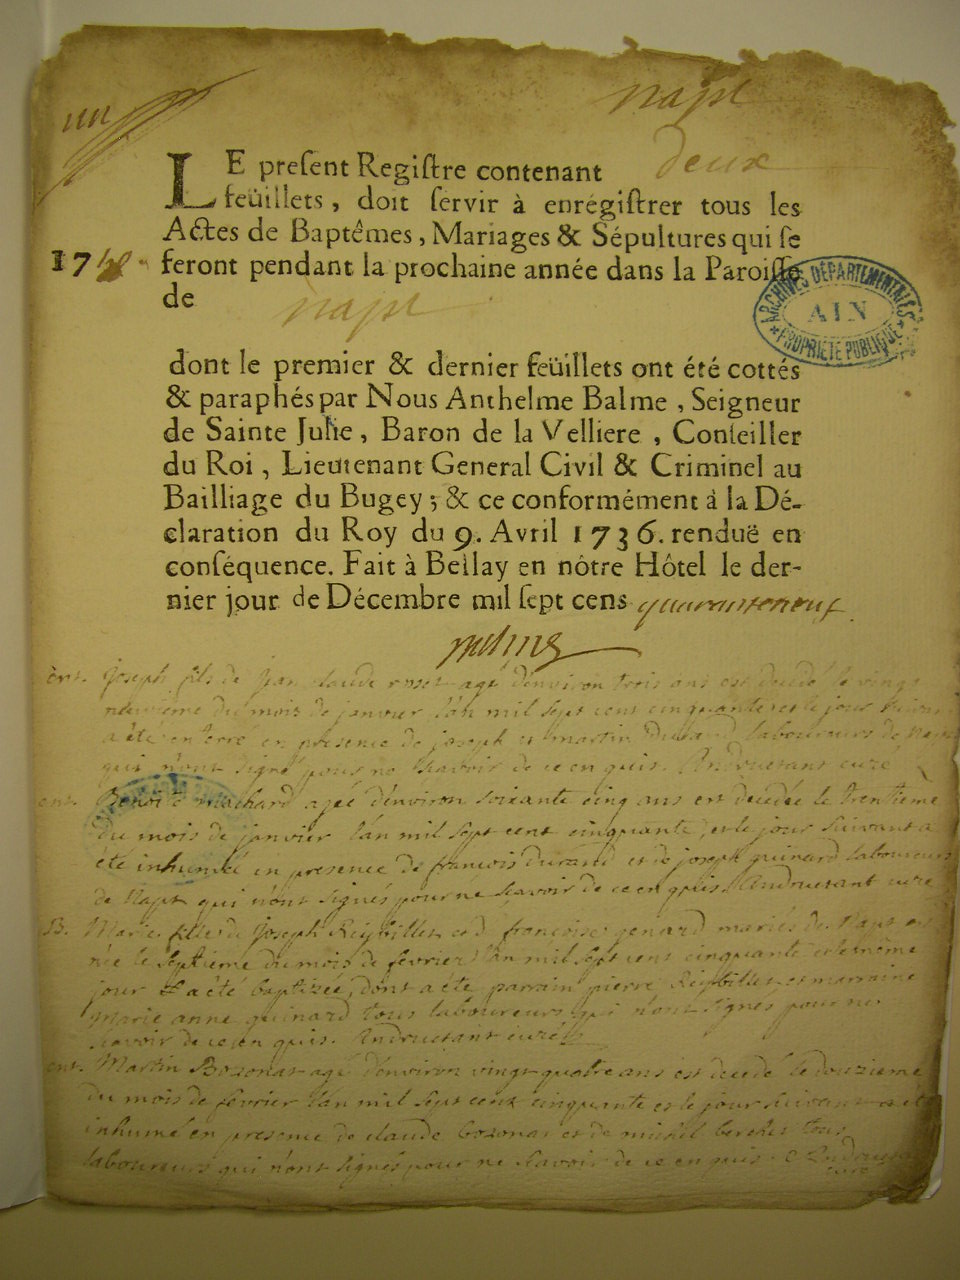 napt
deux
LE preſent Regiſtre contenant
feüillets, doit ſervir à enrégiſtrer tous les
Actes de Baptêmes, Mariages & Sépultures qui ſe
17
feront pendant la prochaine année dans la Paroiſſe
de napt
ARCHIVES DÉPARTEMENTALES
AIN
PROPRIÉTÉ PUBLIQUE
dont le premier & dernier feüillets ont été cottés
& paraphés par Nous Anthelme Balme, Seigneur
de Sainte Julie, Baron de la Velliere, Conſeiller
du Roi, Lieutenant General Civil & Criminel au
Bailliage du Bugey; & ce conformément à la Dé-
claration du Roy du 9. Avril 1736. renduë en
conſéquence. Fait à Bellay en nôtre Hôtel le der-
nier jour de Décembre mil ſept cens quaranteneuf
ent. Joseph fils de Jean claude agé d'environ trois ans est decedé le vingt
neuvieme du mois de janvier l'an mil sept cent cinquante et le jour
a été enterré en presence de joseph et martin Durand laboureurs de
qui n'ont signé pour ne scavoir de ce enquis. Andruetant curé
ent. Benoite machard agée d'environ soixante cinq ans est decedée le trentieme
du mois de janvier l'an mil sept cent cinquante, et le jour suivant a
été inhumée en presence de francois durand et de joseph guinard laboureurs
de Napt qui n'ont signés pour ne scavoir de ce enquis. Andruetant curé
B. Marie fille de Joseph Reybillet et françoise genard mariés de Napt est
née le septieme du mois de fevrier l'an mil sept cent cinquante et le même
jour a été baptizée, dont a été parrain pierre Reybillet et marraine
Marie anne guinard tous laboureurs qui n'ont signés pour ne
scavoir de ce enquis. Andruetant curé
ent. Martin Bozonat agé d'environ vingt quatre ans est decedé le douzieme
du mois de fevrier l'an mil sept cent cinquante et le jour suivant a été
inhumé en presence de claude bozonat et de michel tous
laboureurs qui n'ont signés pour ne scavoir de ce enquis.
curé